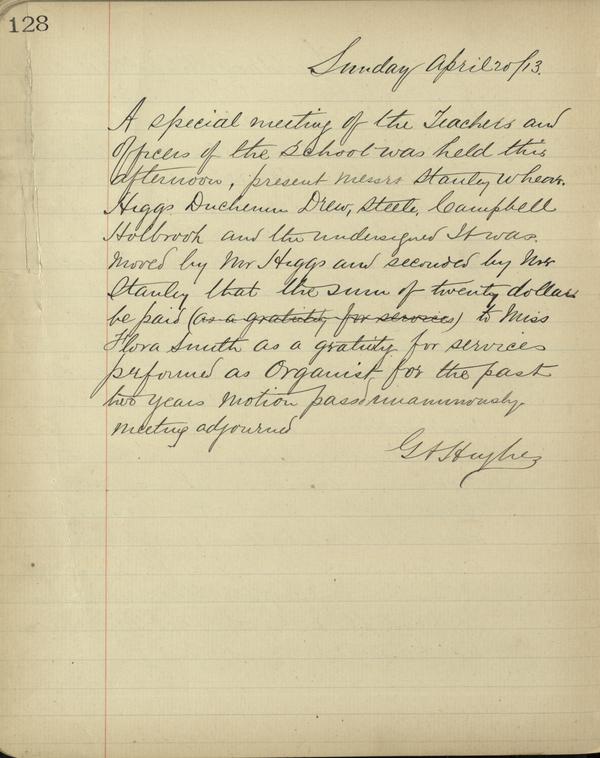 128
Sunday April 20/13.
A special meeting of the Teachers and
Officers of the School was held this
afternoon, present Messrs Stanley
Higgs Drew, Steele, Campbell
Holbrook and the undersigned It was
moved by Mr Higgs and seconded by
Stanley that the sum of twenty dollars
be paid (as a gratuity for services) to Miss
Flora Smith as a gratuity for services
performed as Organist for the past
two years Motion passd
meeting adjourned
Hughes